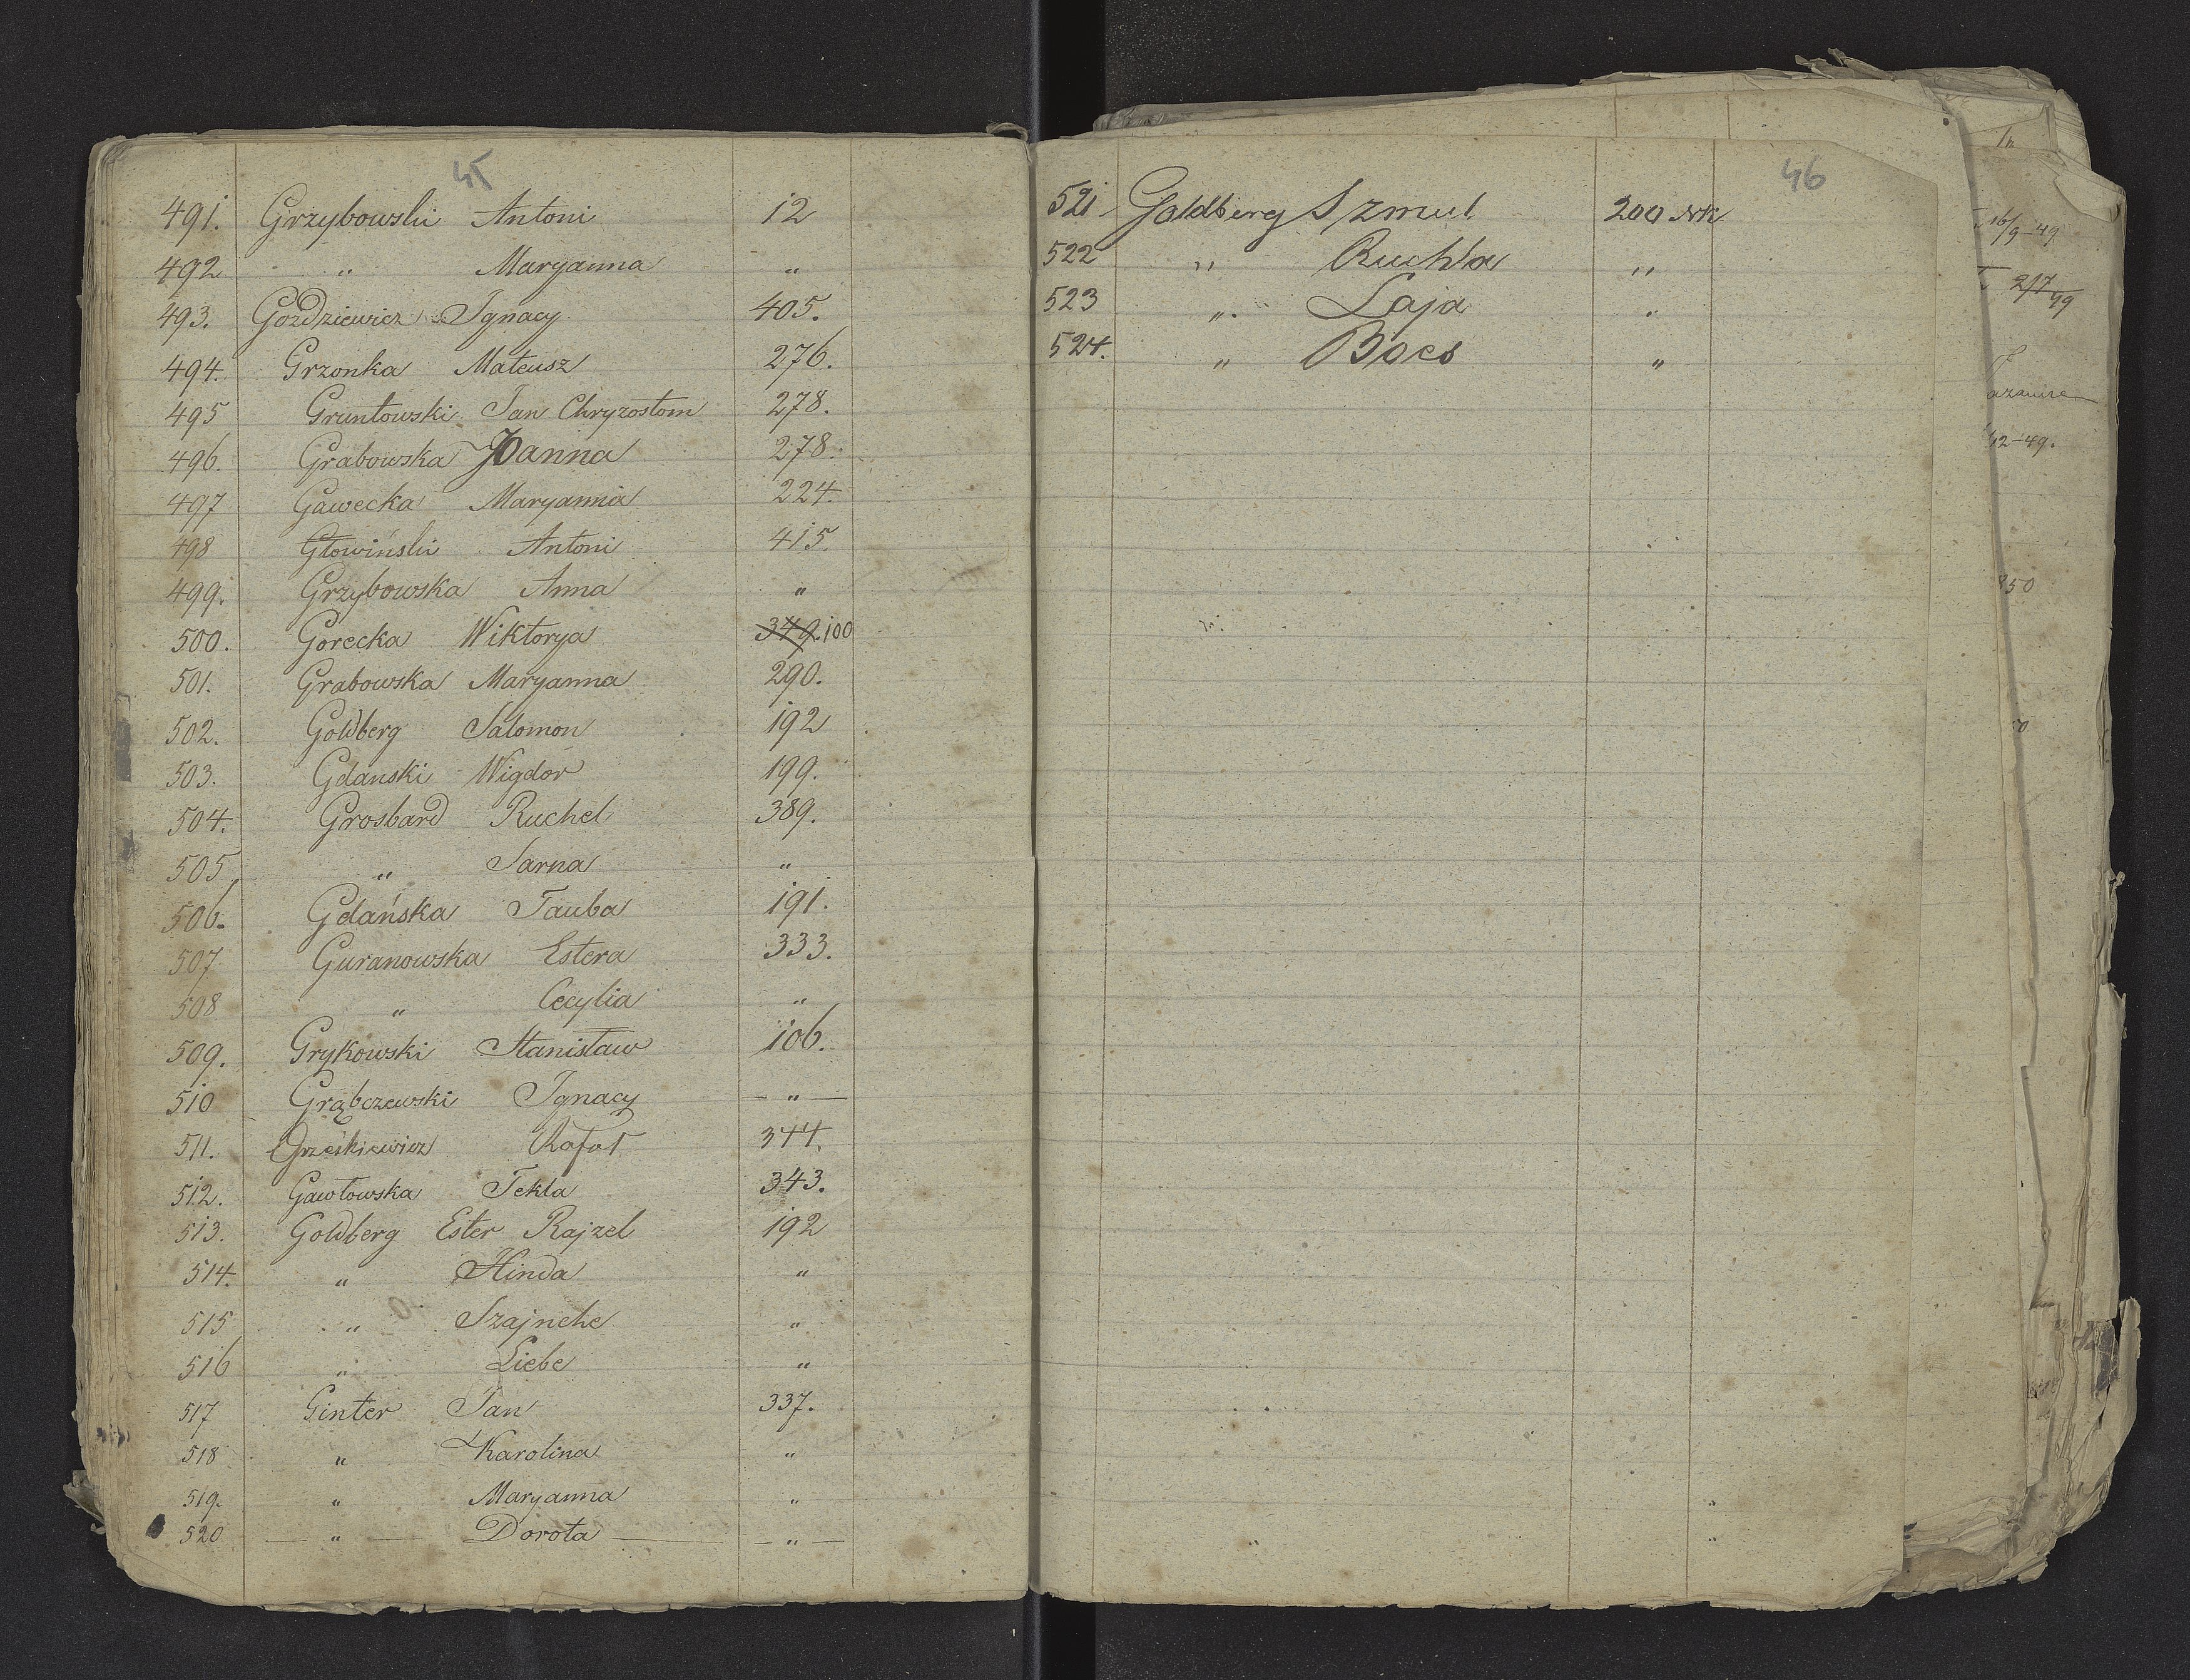 45
491. Grzybowski Antoni 12
492 " Maryanna "
493. Gozdziewicz Ignacy 405.
494. Grzonka Mateusz 276.
495 Gruntowski Jan Chryzostom 278.
496. Grabowska Joanna 278.
497 Gawecka Maryanna 224.
498 Głowiński Antoni 415.
499. Grzybowska Anna "
500. Gorecka Wiktorya 349. 100
501. Grabowska Maryanna 290.
502. Goldberg Salomon 192
503. Gdanski Wigdor 199.
504. Grosbard Ruchel 389.
505 " Sarna "
506. Gdańska Tauba 191.
507 Guranowska Estera 333.
508 " Cecylia "
509. Grykowski Stanisław 106.
510 Grąbczewski Ignacy — " —
511. Grześkiewicz Rafał 344.
512. Gawłowska Tekla 343.
513. Goldberg Ester Rajzel 192
514. " Hinda "
515 " Szajnche "
516 " Liebe "
517 Ginter Jan 337.
518 " Karolina "
519. " Maryanna "
520 — " — Dorota — " —
46
521. Goldberg Szmul 200
522 " Ruchla "
523 " Laja "
524. " Boes "
16/9-49
2/7 49
12-49.
850